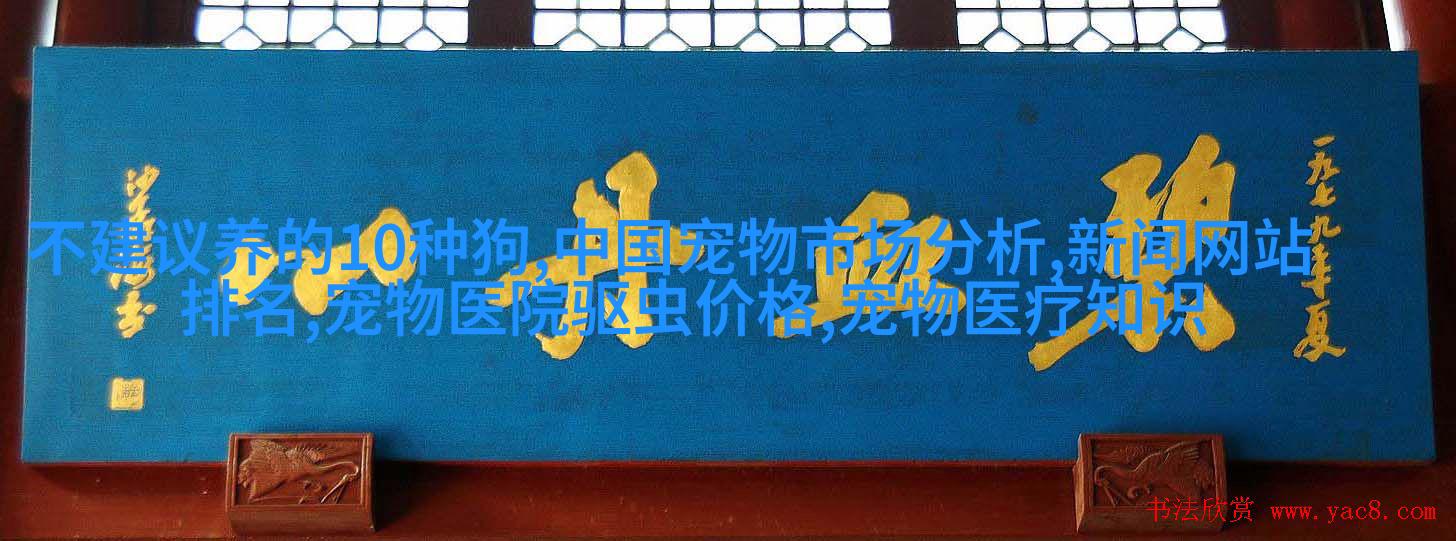 一九七九年夏
碧血丹心
沙孟海书
不建议养的10种狗,中国宠物市场分析,新闻网站
排名,宠物医院驱虫价格,宠物医疗知识
书法欣赏 www.yac8.com